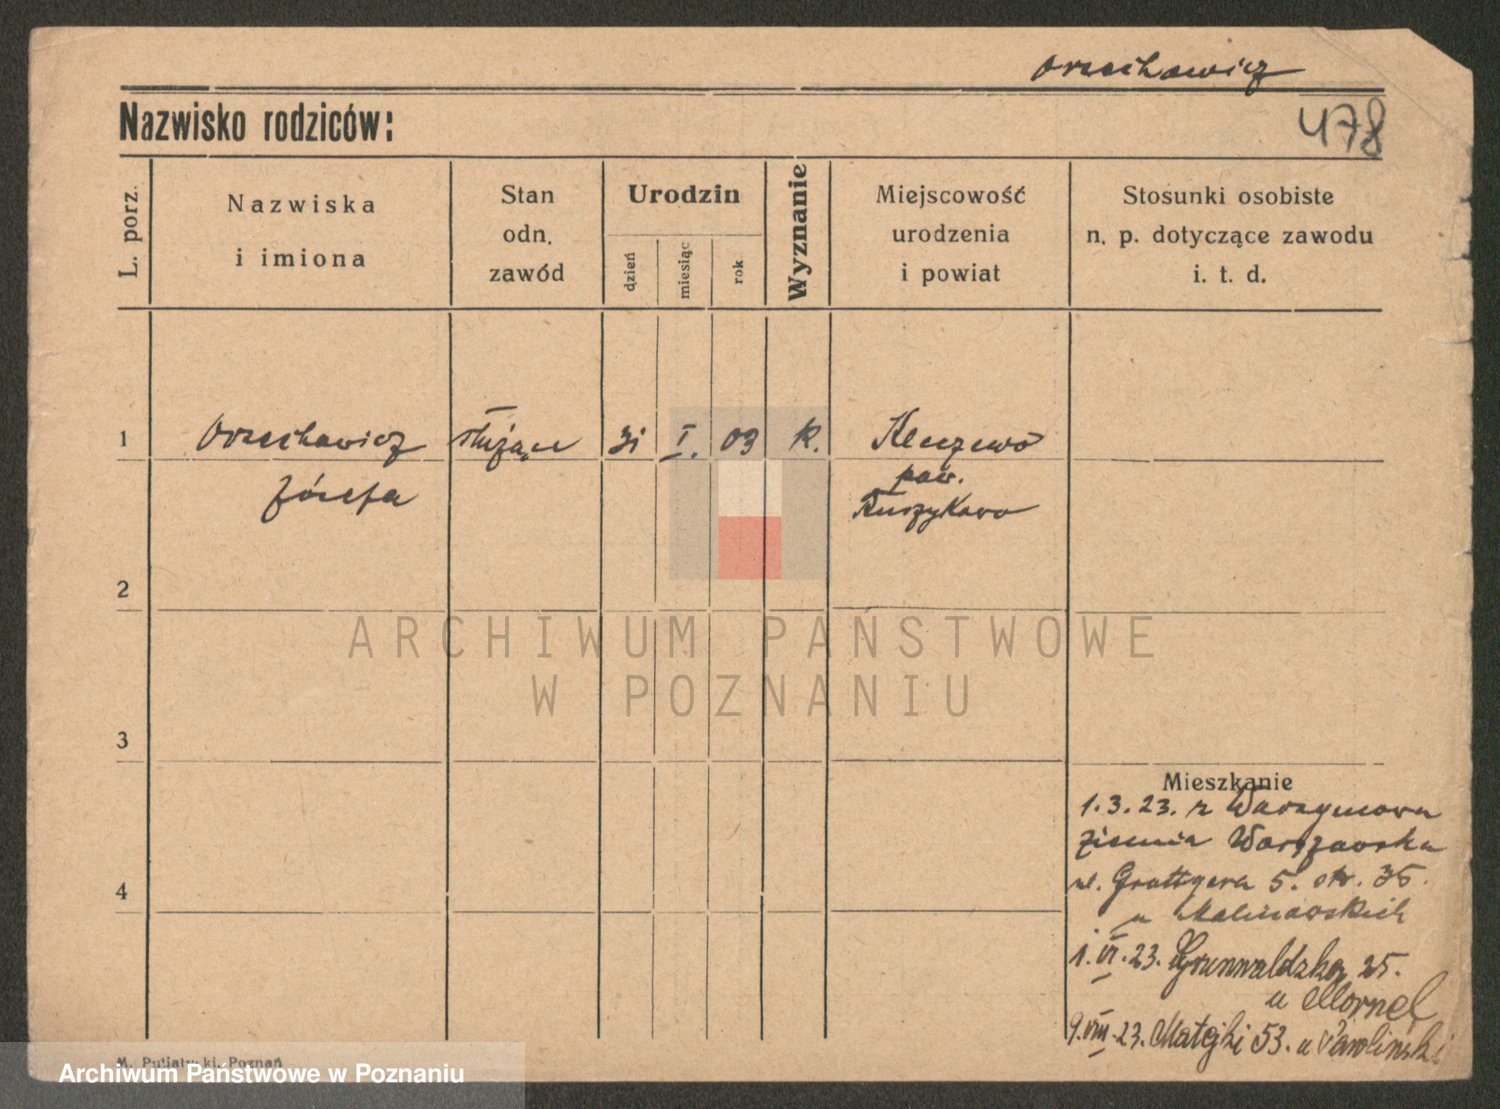 Orzechowicz
Nazwisko rodziców:
478
L. porz.
Nazwiska
i imiona
Stan
odn.
zawód
Urodzin
dzień
miesiąc
rok
Wyznanie
Miejscowość
urodzenia
i powiat
Stosunki osobiste
n. p. dotyczące zawodu
i. t. d.
1
Orzechowicz służąca 31 I. 03 k. Kleczewo
Józefa
pow.
2
ARCHIWUM PAŃSTWOWE
W POZNANIU
3
Mieszkanie
1.3.23. z
ziemia Warszawska
4
ul. Grottgera 5. 
u Malinowskich
1.VI.23. Grunwaldzka 25.
u Mornel
9.VIII.23. Matejki 53. u
M. Putiatycki, Poznań
Archiwum Państwowe w Poznaniu